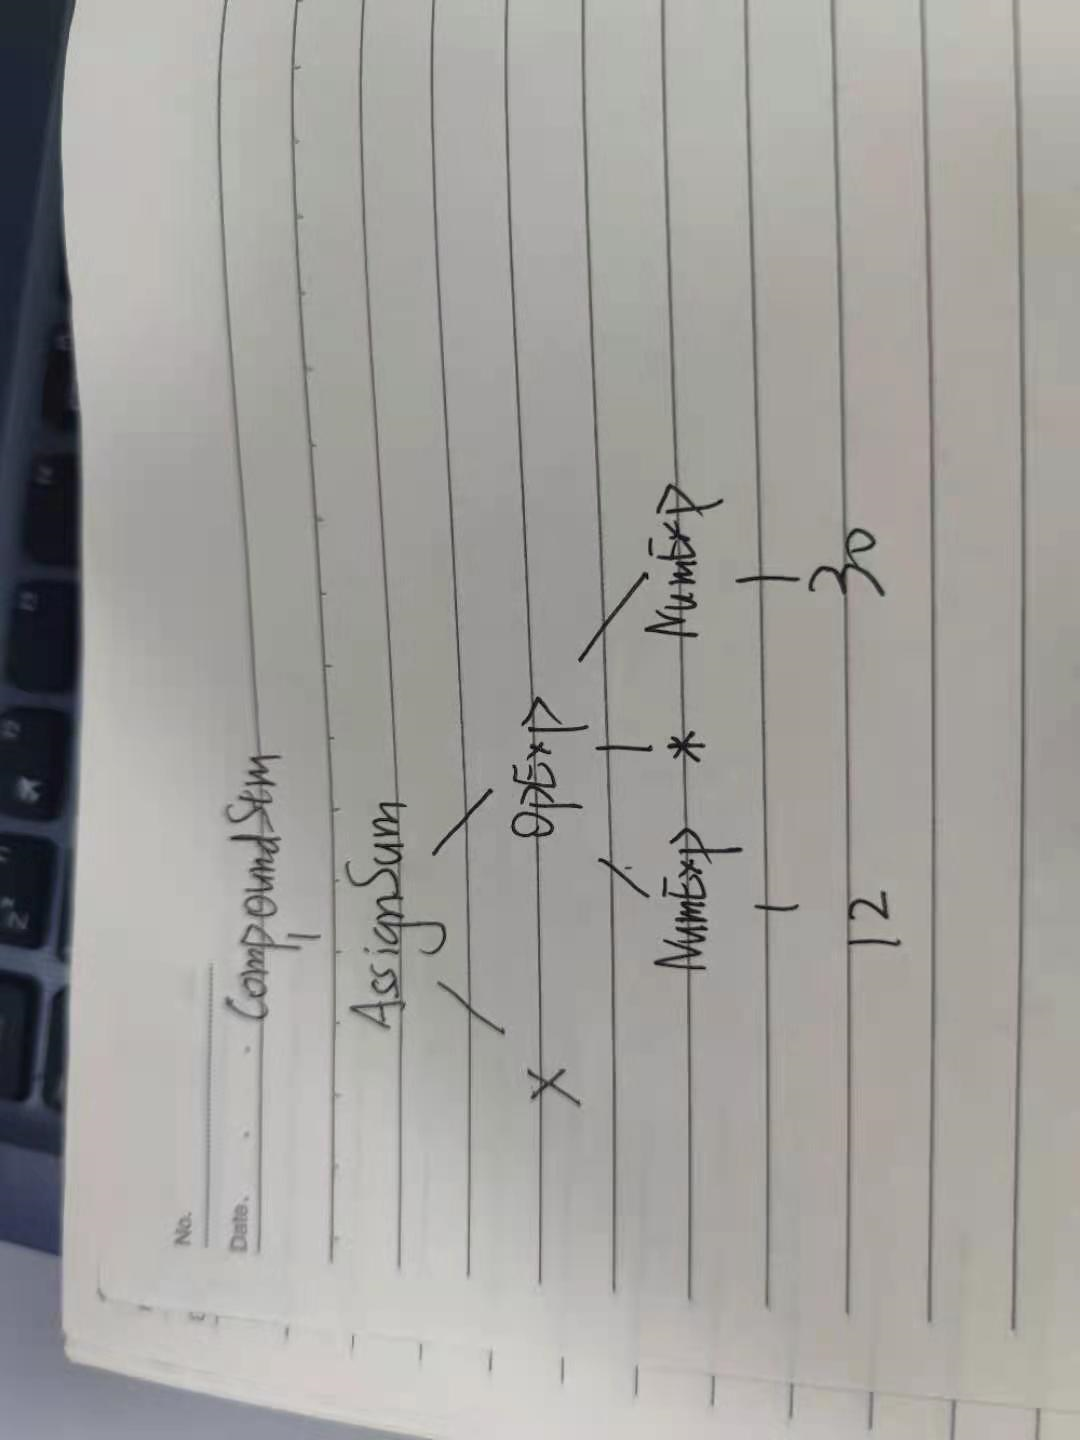 No.
Date. CompoundStm
AssignSum
X OpExp
NumExp * NumExp
12 30